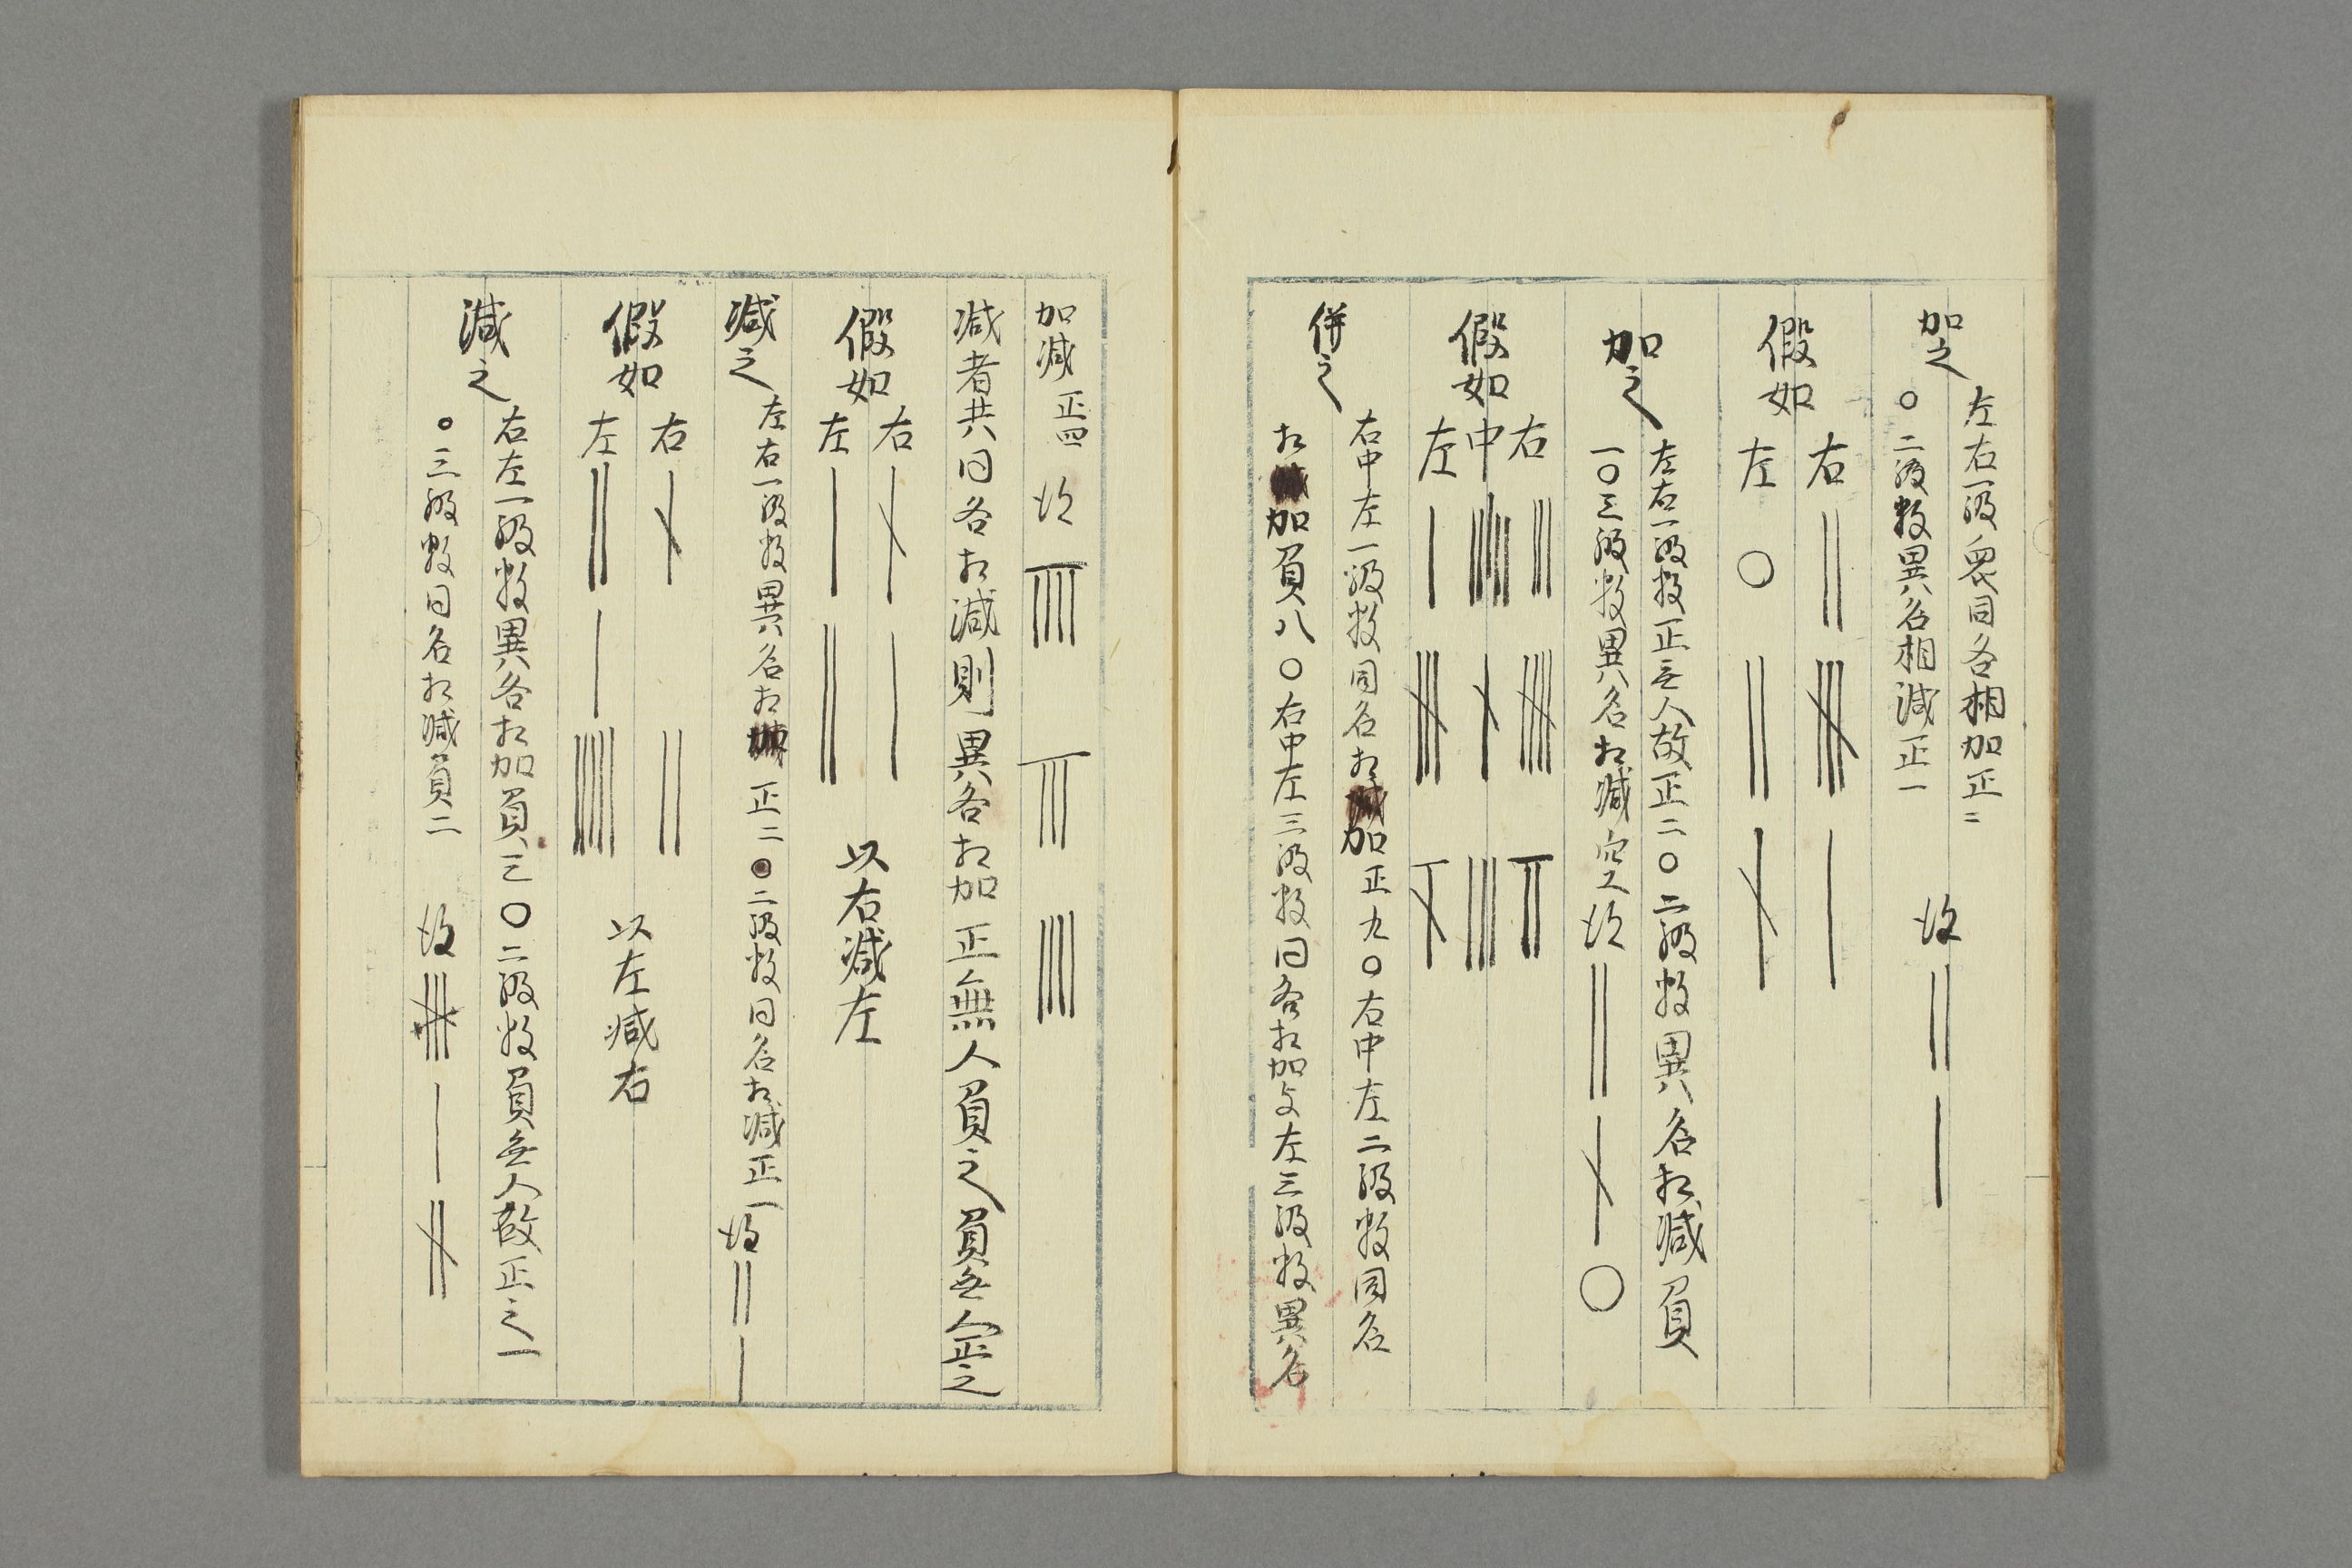 加之
左右一級㒰同名相加正二
○二級数異名相減正一
得 || |
假如
右 || |
左 ○ ||
加之
左右一級数正无人故正二○二級数異名相減負
一○三級数異名相減空得 || ○
假如
右
中
左
併之
右中左一級数同名相加正九○右中左二級数同名
相加負八○右中左三級数同名相加与左三級数異名
加減正四 得
減者共同名相減則異名相加正無人負之負無人正之
假如
右
左 | ||
以右減左
減之
左右一級数異名相 正二○二級数同名相減正一
得 || |
假如
右 ||
左 || |
以左減右
減之
右左一級数異名相加負三○二級数負无人故正之一
○三級数同名相減負二
得